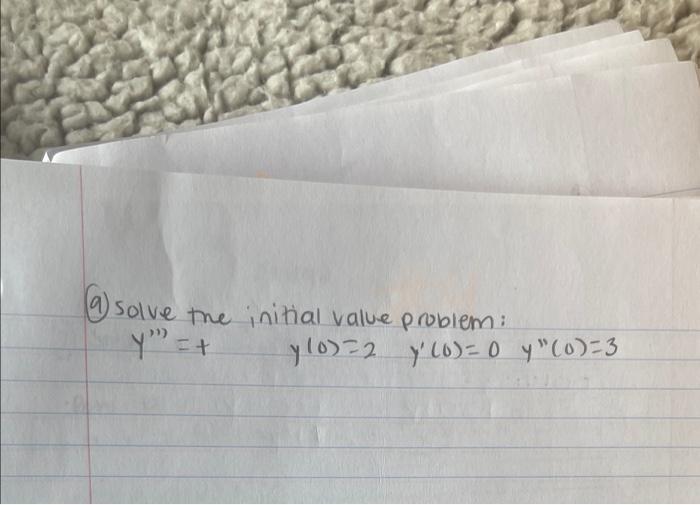 9) solve the initial value problem:
y''' = t y(0)=2 y'(0)=0 y"(0)=3